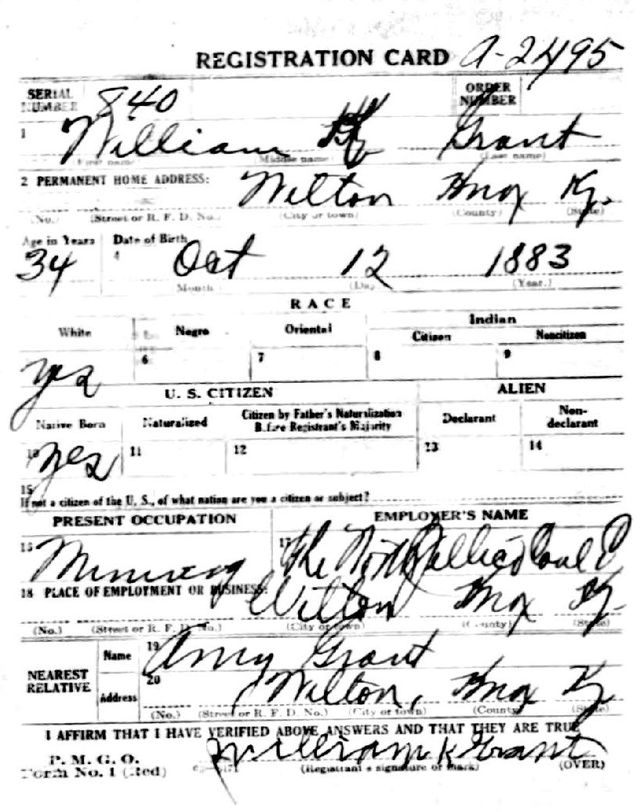 REGISTRATION CARD A-2495
SERIAL NUMBER 840 ORDER NUMBER
1 William Grant
First name (Middle name) (Last name)
2 PERMANENT HOME ADDRESS: Wilton Knox Ky.
(No.) (Street or R. F. D. No.) (City or town) (County) (State)
Age in Years Date of Birth
34 4 Oct 12 1883
Month (Day) (Year.)
RACE
White Negro Oriental Indian
Citizen Noncitizen
yes 6 7 8 9
U. S. CITIZEN ALIEN
Native Born Naturalized Citizen by Father's Naturalization Before Registrant's Majority Declarant Non-declarant
10 yes 11 12 13 14
15 If not a citizen of the U. S., of what nation are you a citizen or subject?
PRESENT OCCUPATION EMPLOYER'S NAME
16 Mining 17 The North Coal
18 PLACE OF EMPLOYMENT OR BUSINESS: Wilton Knox Ky
(No.) (Street or R. F. D. No.) (City or town) (County) (State)
NEAREST RELATIVE Name 19 Amy Grant
Address 20 Wilton, Knox Ky
(No.) (Street or R. F. D. No.) (City or town) (County) (State)
I AFFIRM THAT I HAVE VERIFIED ABOVE ANSWERS AND THAT THEY ARE TRUE
P. M. G. O.
Form No. 1 (Red) William K Grant
(Registrant's signature or mark) (OVER)